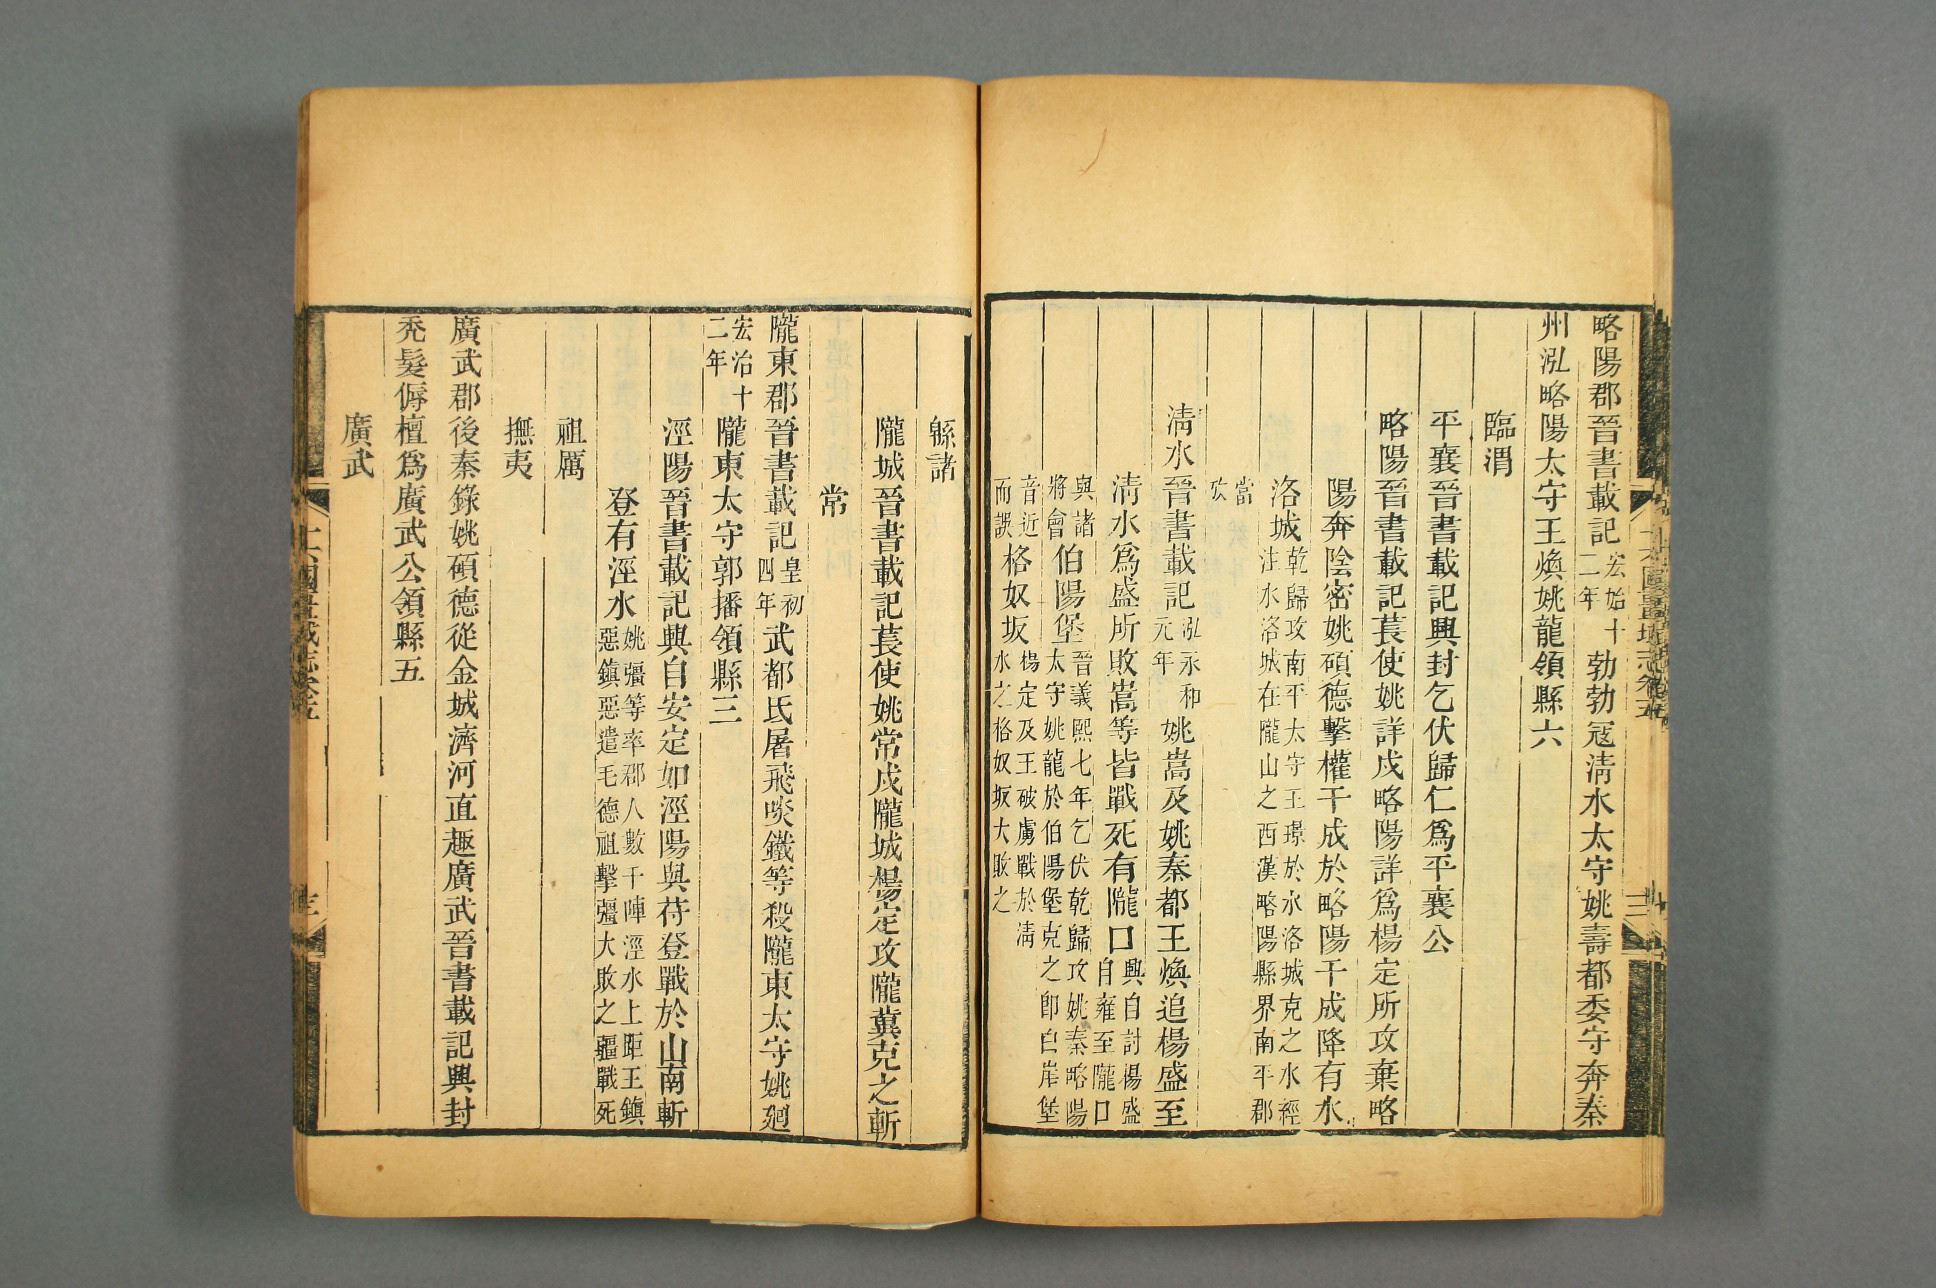 略陽郡晉書載記宏始十二年勃勃寇淸水太守姚壽都委守奔秦
州泓略陽太守王煥姚龍領縣六
臨渭
平襄晉書載記興封乞伏歸仁爲平襄公
略陽晉書載記萇使姚詳戍略陽詳爲楊定所攻棄略
陽奔陰密姚碩德擊權干成於略陽干成降有水
洛城乾歸攻南平太守王璟於水洛城克之水經注水洛城在隴山之西漢略陽縣界南平郡
當
淸水晉書載記泓永和元年姚嵩及姚秦都王煥追楊盛至
淸水爲盛所敗嵩等皆戰死有隴口興自討楊盛自雍至隴口
與諸將會伯陽堡晉義熙七年乞伏乾歸攻姚秦略陽太守姚龍於伯陽堡克之卽白岸堡
音近而誤格奴坂楊定及王破虜戰於淸水之格奴坂大敗之
緜諸
隴城晉書載記萇使姚常戍隴城楊定攻隴冀克之斬
常
隴東郡晉書載記皇初四年武都氐屠飛啖鐵等殺隴東太守姚廻
宏治十二年隴東太守郭播領縣三
涇陽晉書載記興自安定如涇陽與苻登戰於山南斬
登有涇水姚彊等率郡人數千陣涇水上距王鎮惡鎮惡遣毛德祖擊彊大敗之彊戰死
祖厲
撫夷
廣武郡後秦錄姚碩德從金城濟河直趣廣武晉書載記興封
禿髮傉檀爲廣武公領縣五
廣武